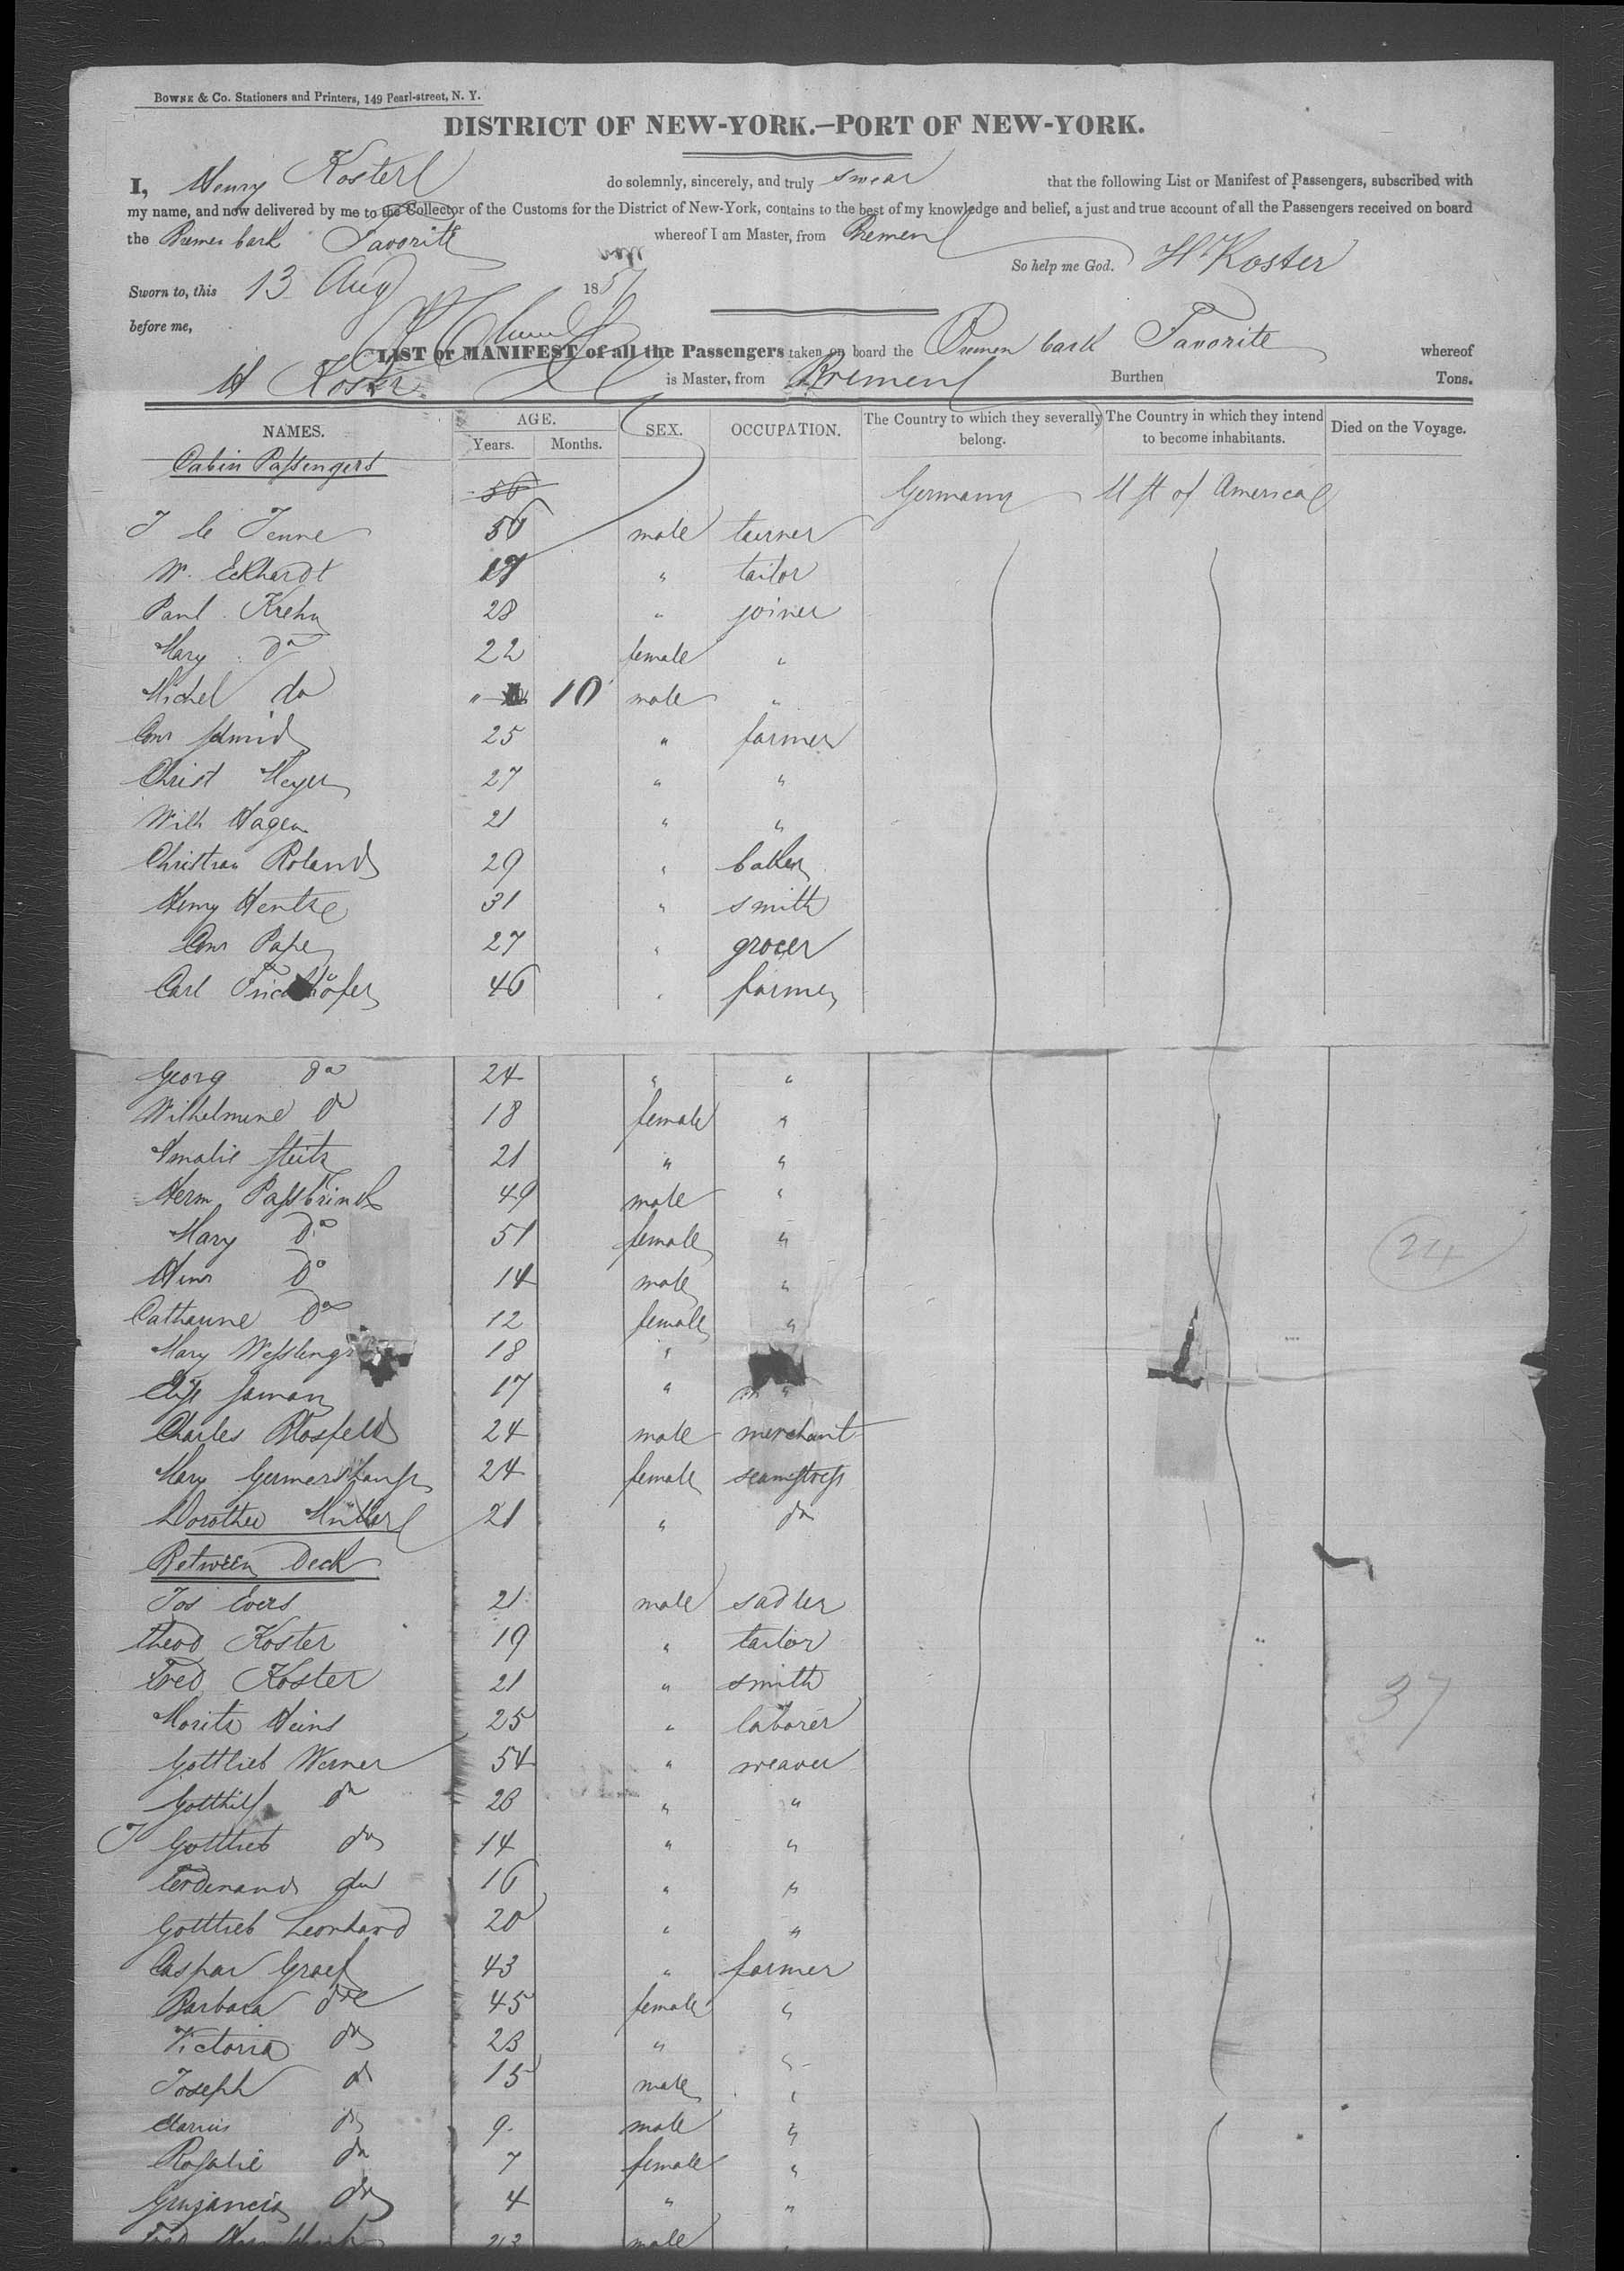 BOWNE & Co. Stationers and Printers, 149 Pearl-street, N. Y.
DISTRICT OF NEW-YORK.—PORT OF NEW-YORK.
I, Henry Koster do solemnly, sincerely, and truly swear that the following List or Manifest of Passengers, subscribed with
my name, and now delivered by me to the Collector of the Customs for the District of New-York, contains to the best of my knowledge and belief, a just and true account of all the Passengers received on board
the Bremer bark Favorite whereof I am Master, from Bremen
So help me God. H. Koster
Sworn to, this 13 Aug 1857
before me,
LIST or MANIFEST of all the Passengers taken on board the Bremen bark Favorite whereof
H Koster is Master, from Bremen Burthen Tons.
NAMES. AGE. Years. Months. SEX. OCCUPATION. The Country to which they severally belong. The Country in which they intend to become inhabitants. Died on the Voyage.
Cabin Passengers
56 Germany U St of America
J le Jenne 56 male turner
W. Eckhardt 17 " tailor
Paul Krehn 28 " joiner
Mary do 22 female "
Michel do " 10 male "
Conr Schmid 25 " farmer
Christ Meyer 27 " "
Wilh Hagen 21 " "
Christian Roland 29 " baker
Henry Hentze 31 " smith
Conr Pape 27 " grocer
Carl 46 " farmer
Georg do 24 " "
Wilhelmine do 18 female "
Amalie Steitz 21 " "
Herm. Passbrink 49 male "
Mary Do 51 female "
Heinr Do 14 male "
Catharine Do 12 female "
Mary 18 "
Elise Jaman 17 " "
Charles Blosfeld 24 male merchant
Mary 24 female seamstress
Dorothee Müller 21 " do
Between Deck
Jos Evers 21 male sadler
Theod Koster 19 " tailor
Fred Koster 21 " smith
Moritz Heins 25 " laborer
Gottlieb Werner 54 " weaver
Gotthilf do 28 " "
J Gottlieb do 14 " "
Ferdinand do 16 " "
Gottlieb Leonhard 20 " "
Caspar Graef 43 " farmer
Barbara do 45 female "
Victoria do 23 " "
Joseph do 15 male "
do 9 male "
Rosalie do 7 female "
do 4 " "
Fred 23 male "
24
37